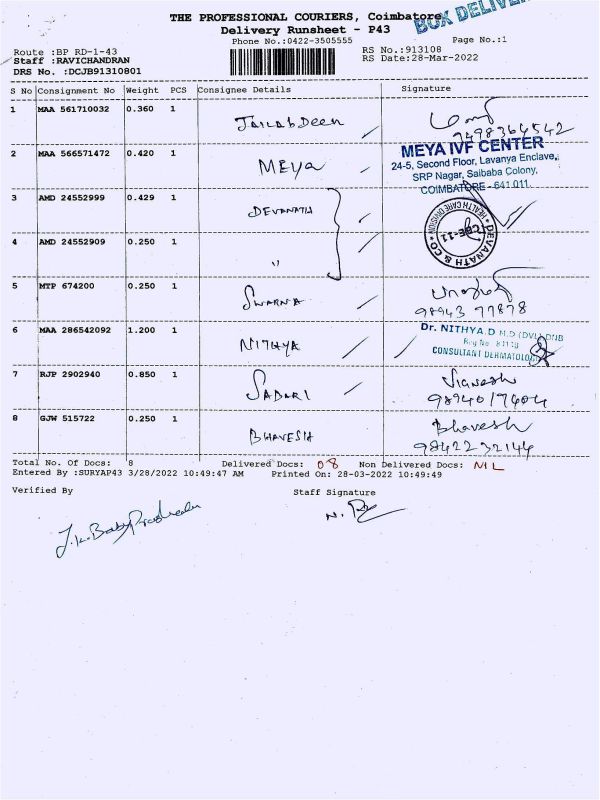 THE PROFESSIONAL COURIERS, Coimbatore
BOX DELIVER
Delivery Runsheet - P43
Phone No.:0422-3505555 Page No.:1
Route :BP RD-1-43 RS No.:913108
Staff :RAVICHANDRAN RS Date:28-Mar-2022
DRS No. :DCJB91310801
S No Consignment No Weight PCS Consignee Details Signature
1 MAA 561710032 0.360 1 JainabDeen
7498364542
2 MAA 566571472 0.420 1 MEYA
MEYA IVF CENTER
24-5, Second Floor, Lavanya Enclave,
SRP Nagar, Saibaba Colony,
COIMBATORE - 641 011.
3 AMD 24552999 0.429 1 DEVANATH
DEVANATH & CO * HEALTH CARE DIVISION *
CBE-11
4 AMD 24552909 0.250 1 "
5 MTP 674200 0.250 1 SWARNA
98943 77878
6 MAA 286542092 1.200 1 NITHYA
Dr. NITHYA.D M.D (DVL) DNB
Reg No
CONSULTANT DERMATOLOGIST
7 RJP 2902940 0.850 1 SABARI Vignesh
9894017404
8 GJW 515722 0.250 1 BHAVESH Bhavesh
9842232144
Total No. Of Docs: 8 Delivered Docs: 08 Non Delivered Docs: NIL
Entered By :SURYAP43 3/28/2022 10:49:47 AM Printed On: 28-03-2022 10:49:49
Verified By Staff Signature